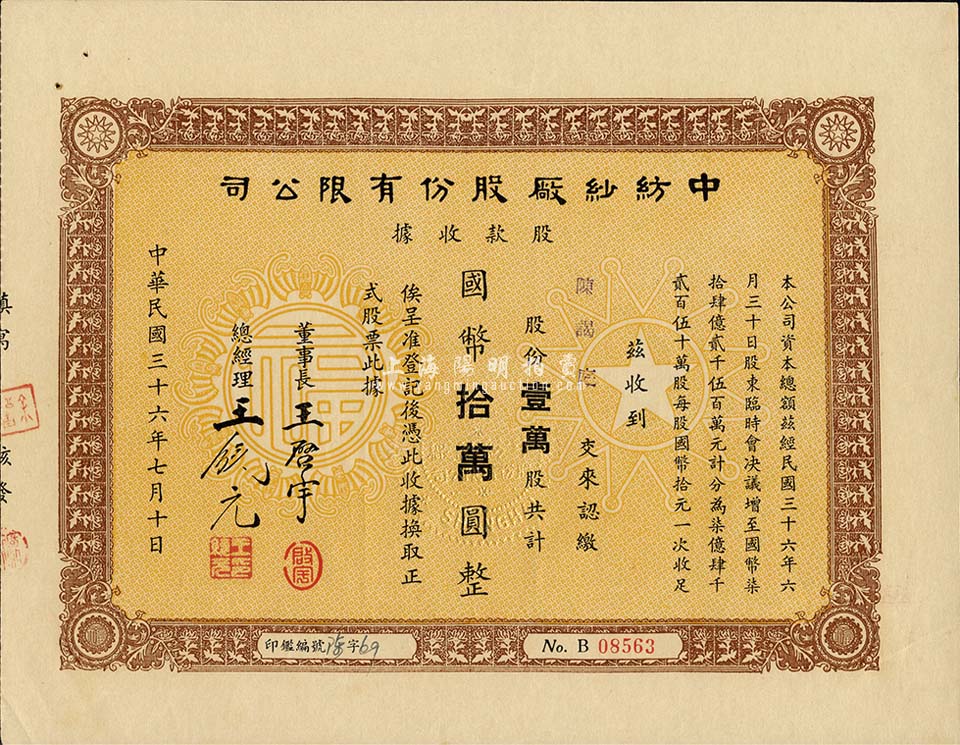 中紡紗廠股份有限公司
股款收據
本公司資本總額茲經民國三十六年六
月三十日股東臨時會決議增至國幣柒
拾肆億貳千伍百萬元計分為柒億肆千
貳百伍十萬股每股國幣拾元一次收足
茲收到
陳 交來認繳
股份壹萬股共計
國幣拾萬圓整
俟呈准登記後憑此收據換取正
式股票此據
董事長 王啓宇
總經理 王 元
中華民國三十六年七月十日
印鑑編號 字69
No. B 08563
上海陽明拍賣
www.yangmingauction.com